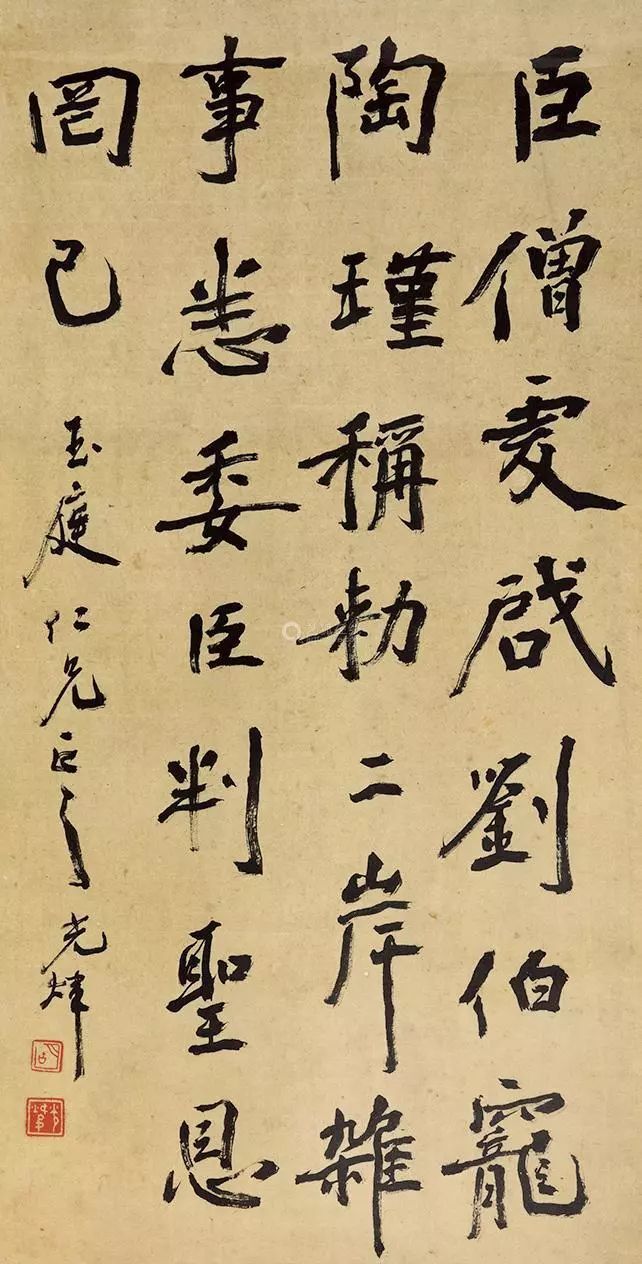 臣僧虔啟劉伯寵
陶瑾稱勑二岸雜
事悉委臣判聖恩
罔已 玉庭仁兄正之 光煒